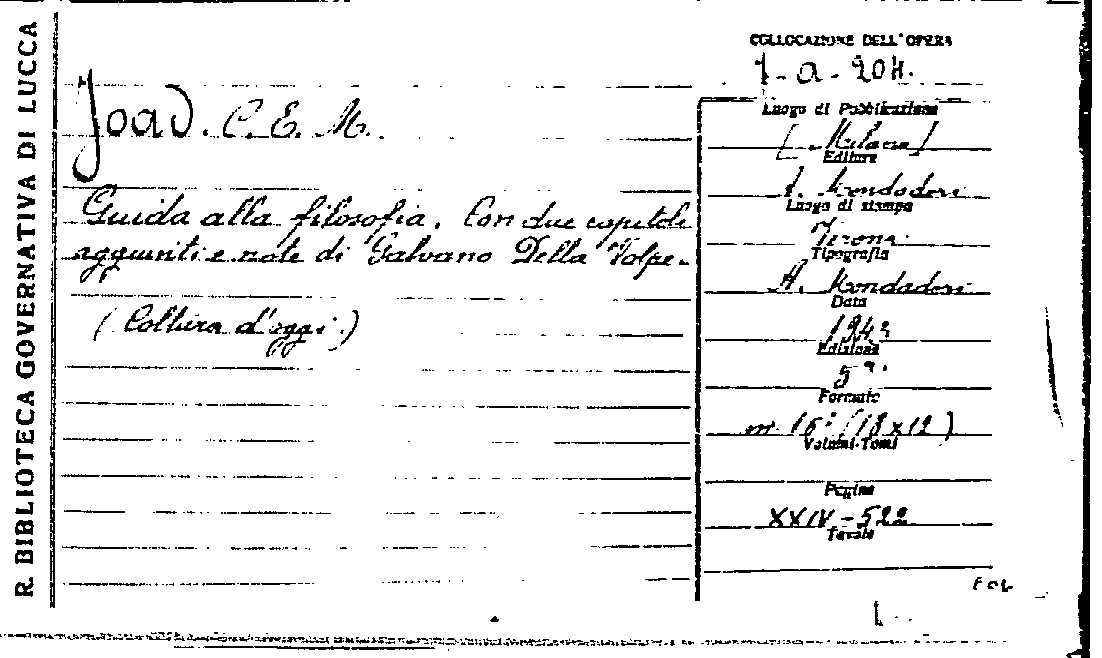 R. BIBLIOTECA GOVERNATIVA DI LUCCA
COLLOCAZIONE DELL'OPERA
7-a-204.
Joad. C. E. M.
Guida alla filosofia. Con due capitoli
aggiunti e note di Galvano Della Volpe.
(Coltura d'oggi.)
Luogo di Pubblicazione
[Milano]
Editore
A. Mondadori
Luogo di stampa
Verona.
Tipografia
A. Mondadori
Data
Edizione
5ª.
Formato
in 16° (18x12)
Volumi-Tomi
Pagine
XXIV-522
Tavole